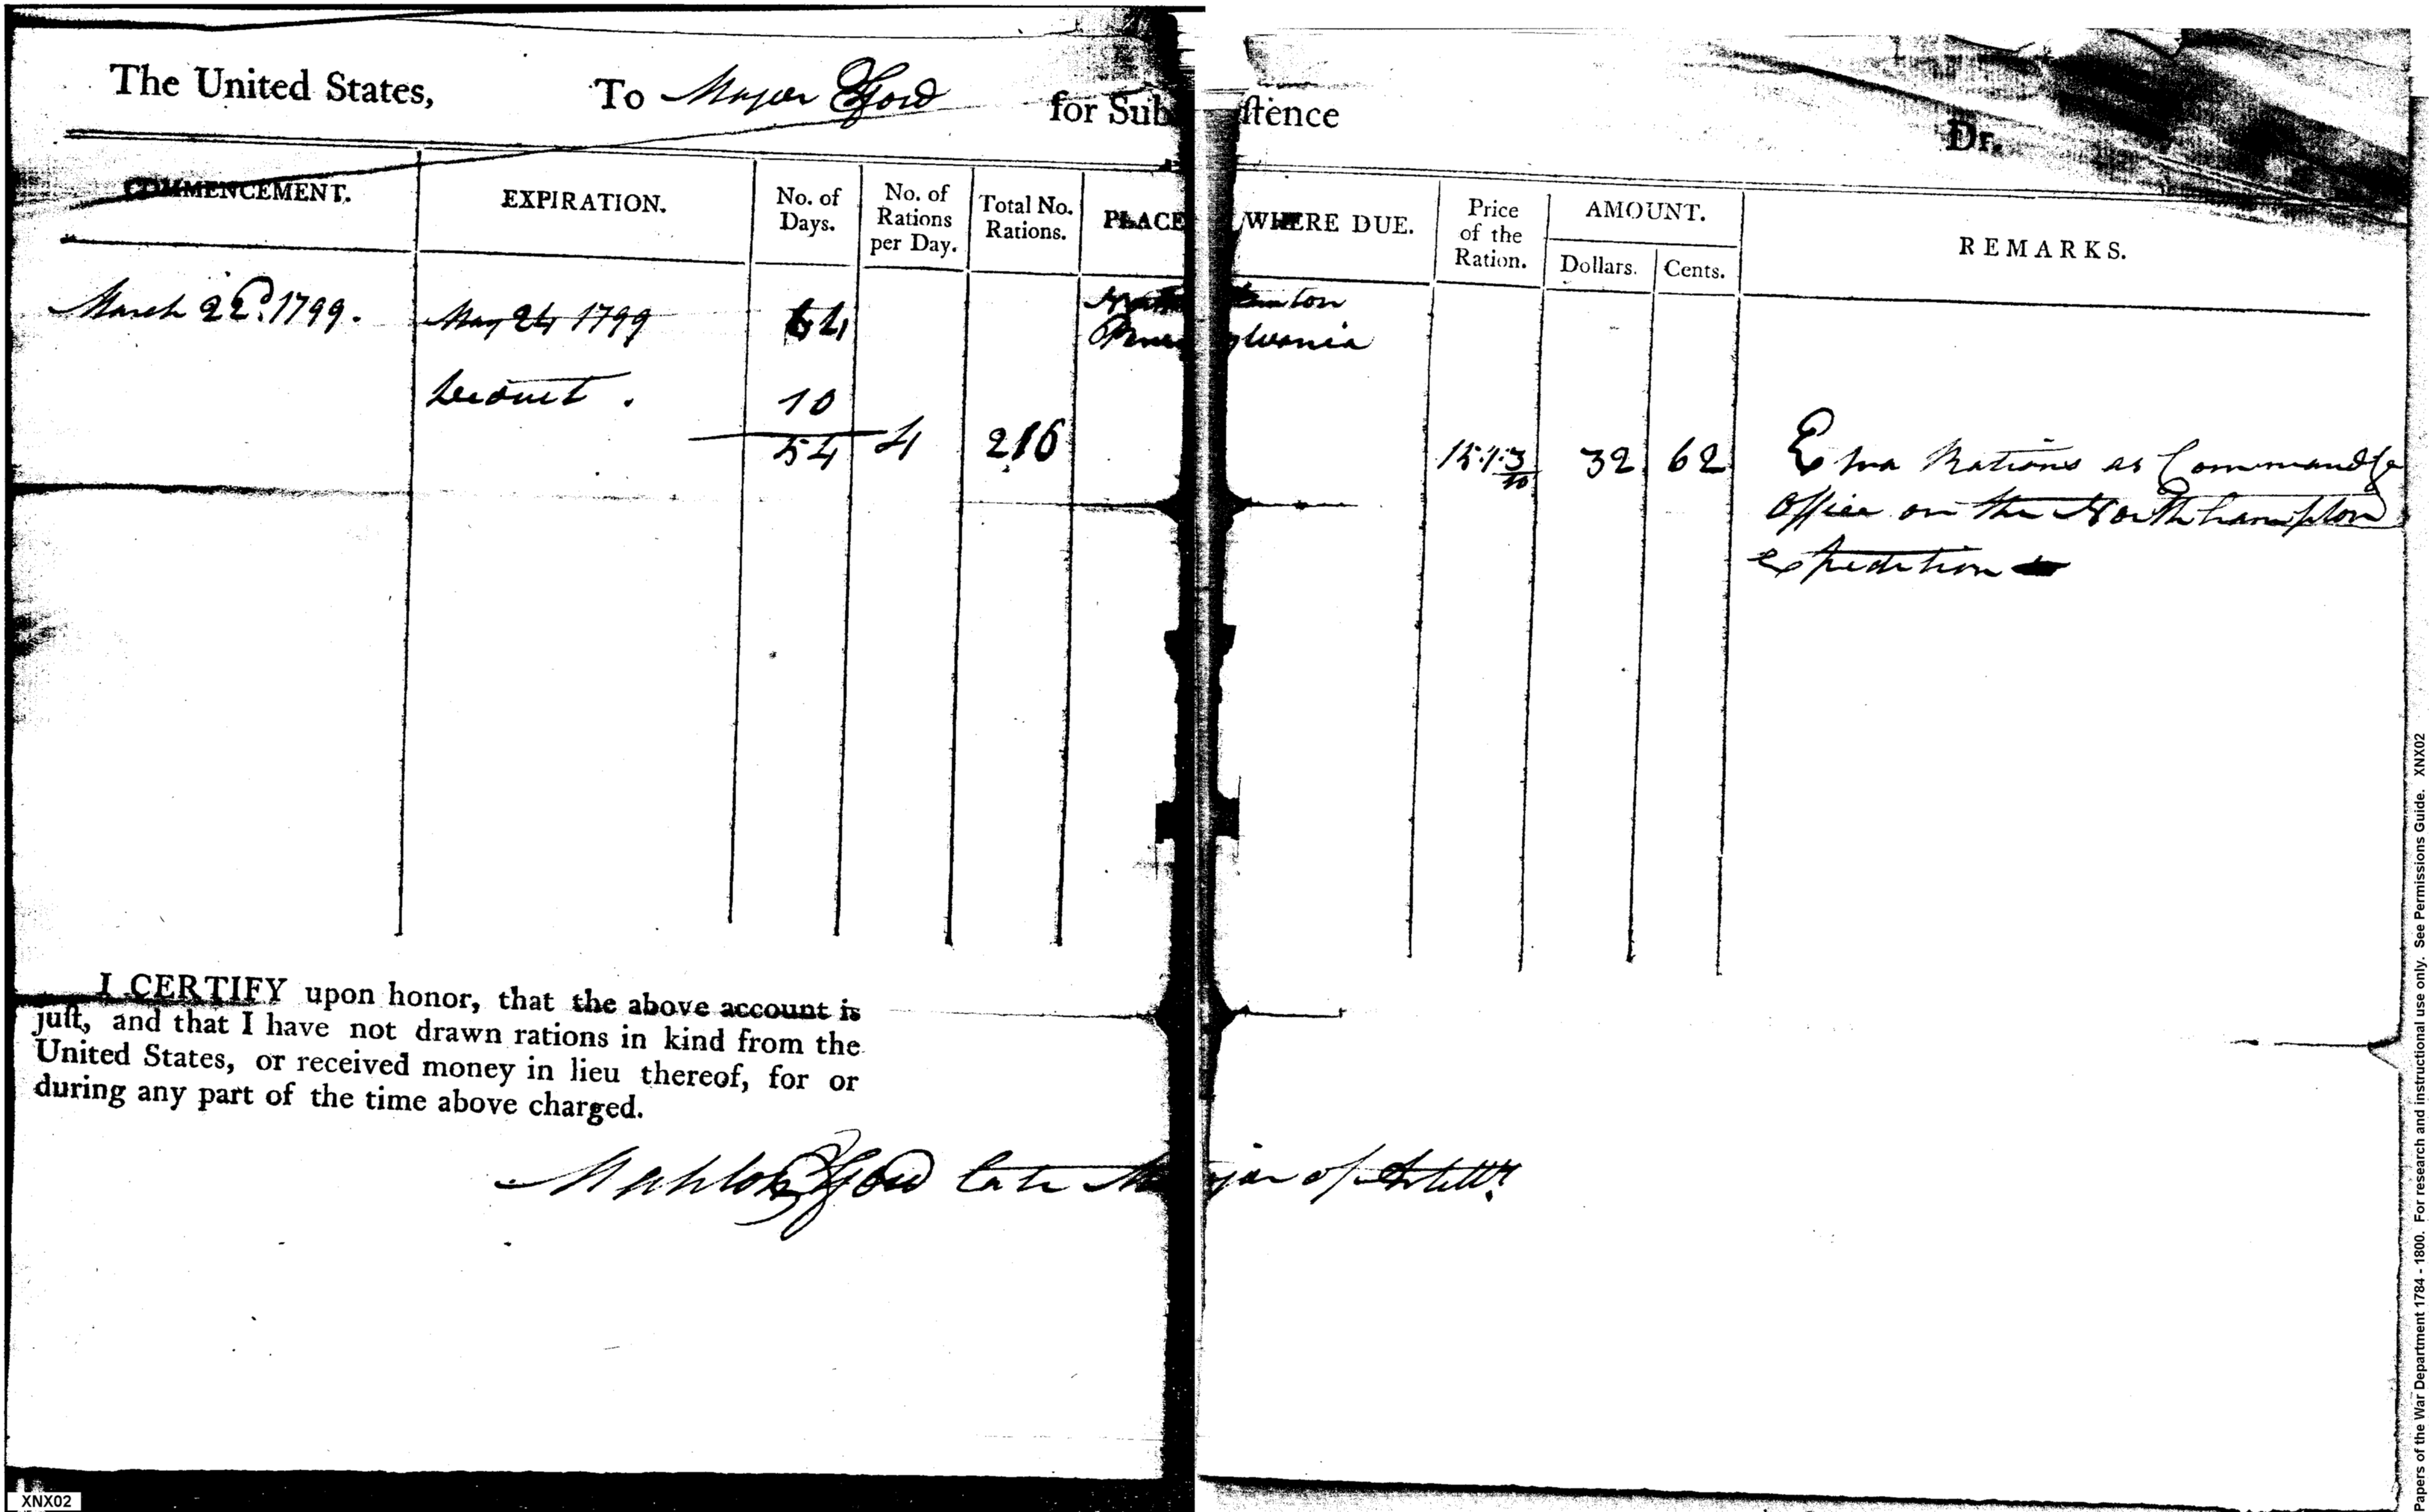 The United States, To Major Ford for Subsistence Dr.
COMMENCEMENT. EXPIRATION. No. of Days. No. of Rations per Day. Total No. Rations. PLACE WHERE DUE. Price of the Ration. AMOUNT. Dollars. Cents. REMARKS.
March 22d. 1799. May 24 1799 64
Pennsylvania
Deduct . 10
54 4 216 15.1.3/10 32 62 Extra Rations as Commandg
Officer on the Northhampton
expedition
I CERTIFY upon honor, that the above account is
juſt, and that I have not drawn rations in kind from the
United States, or received money in lieu thereof, for or
during any part of the time above charged.
Mahlon Ford late Major of Artillʸ
XNX02
Papers of the War Department 1784 - 1800. For research and instructional use only. See Permissions Guide. XNX02